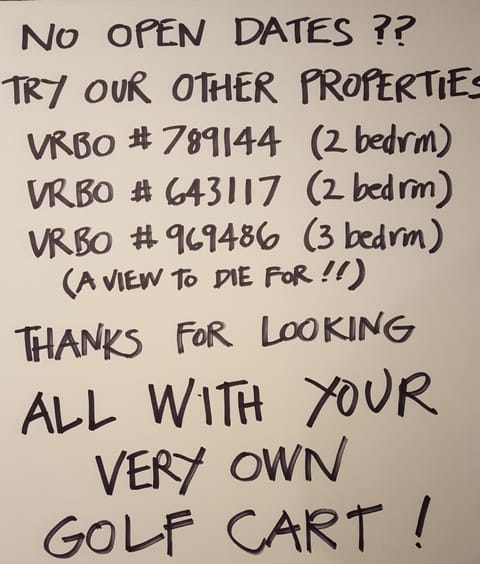 NO OPEN DATES ??
TRY OUR OTHER PROPERTIES
VRBO # 789144 (2 bedrm)
VRBO # 643117 (2 bedrm)
VRBO # 969486 (3 bedrm)
(A VIEW TO DIE FOR !!)
THANKS FOR LOOKING
ALL WITH YOUR
VERY OWN
GOLF CART !